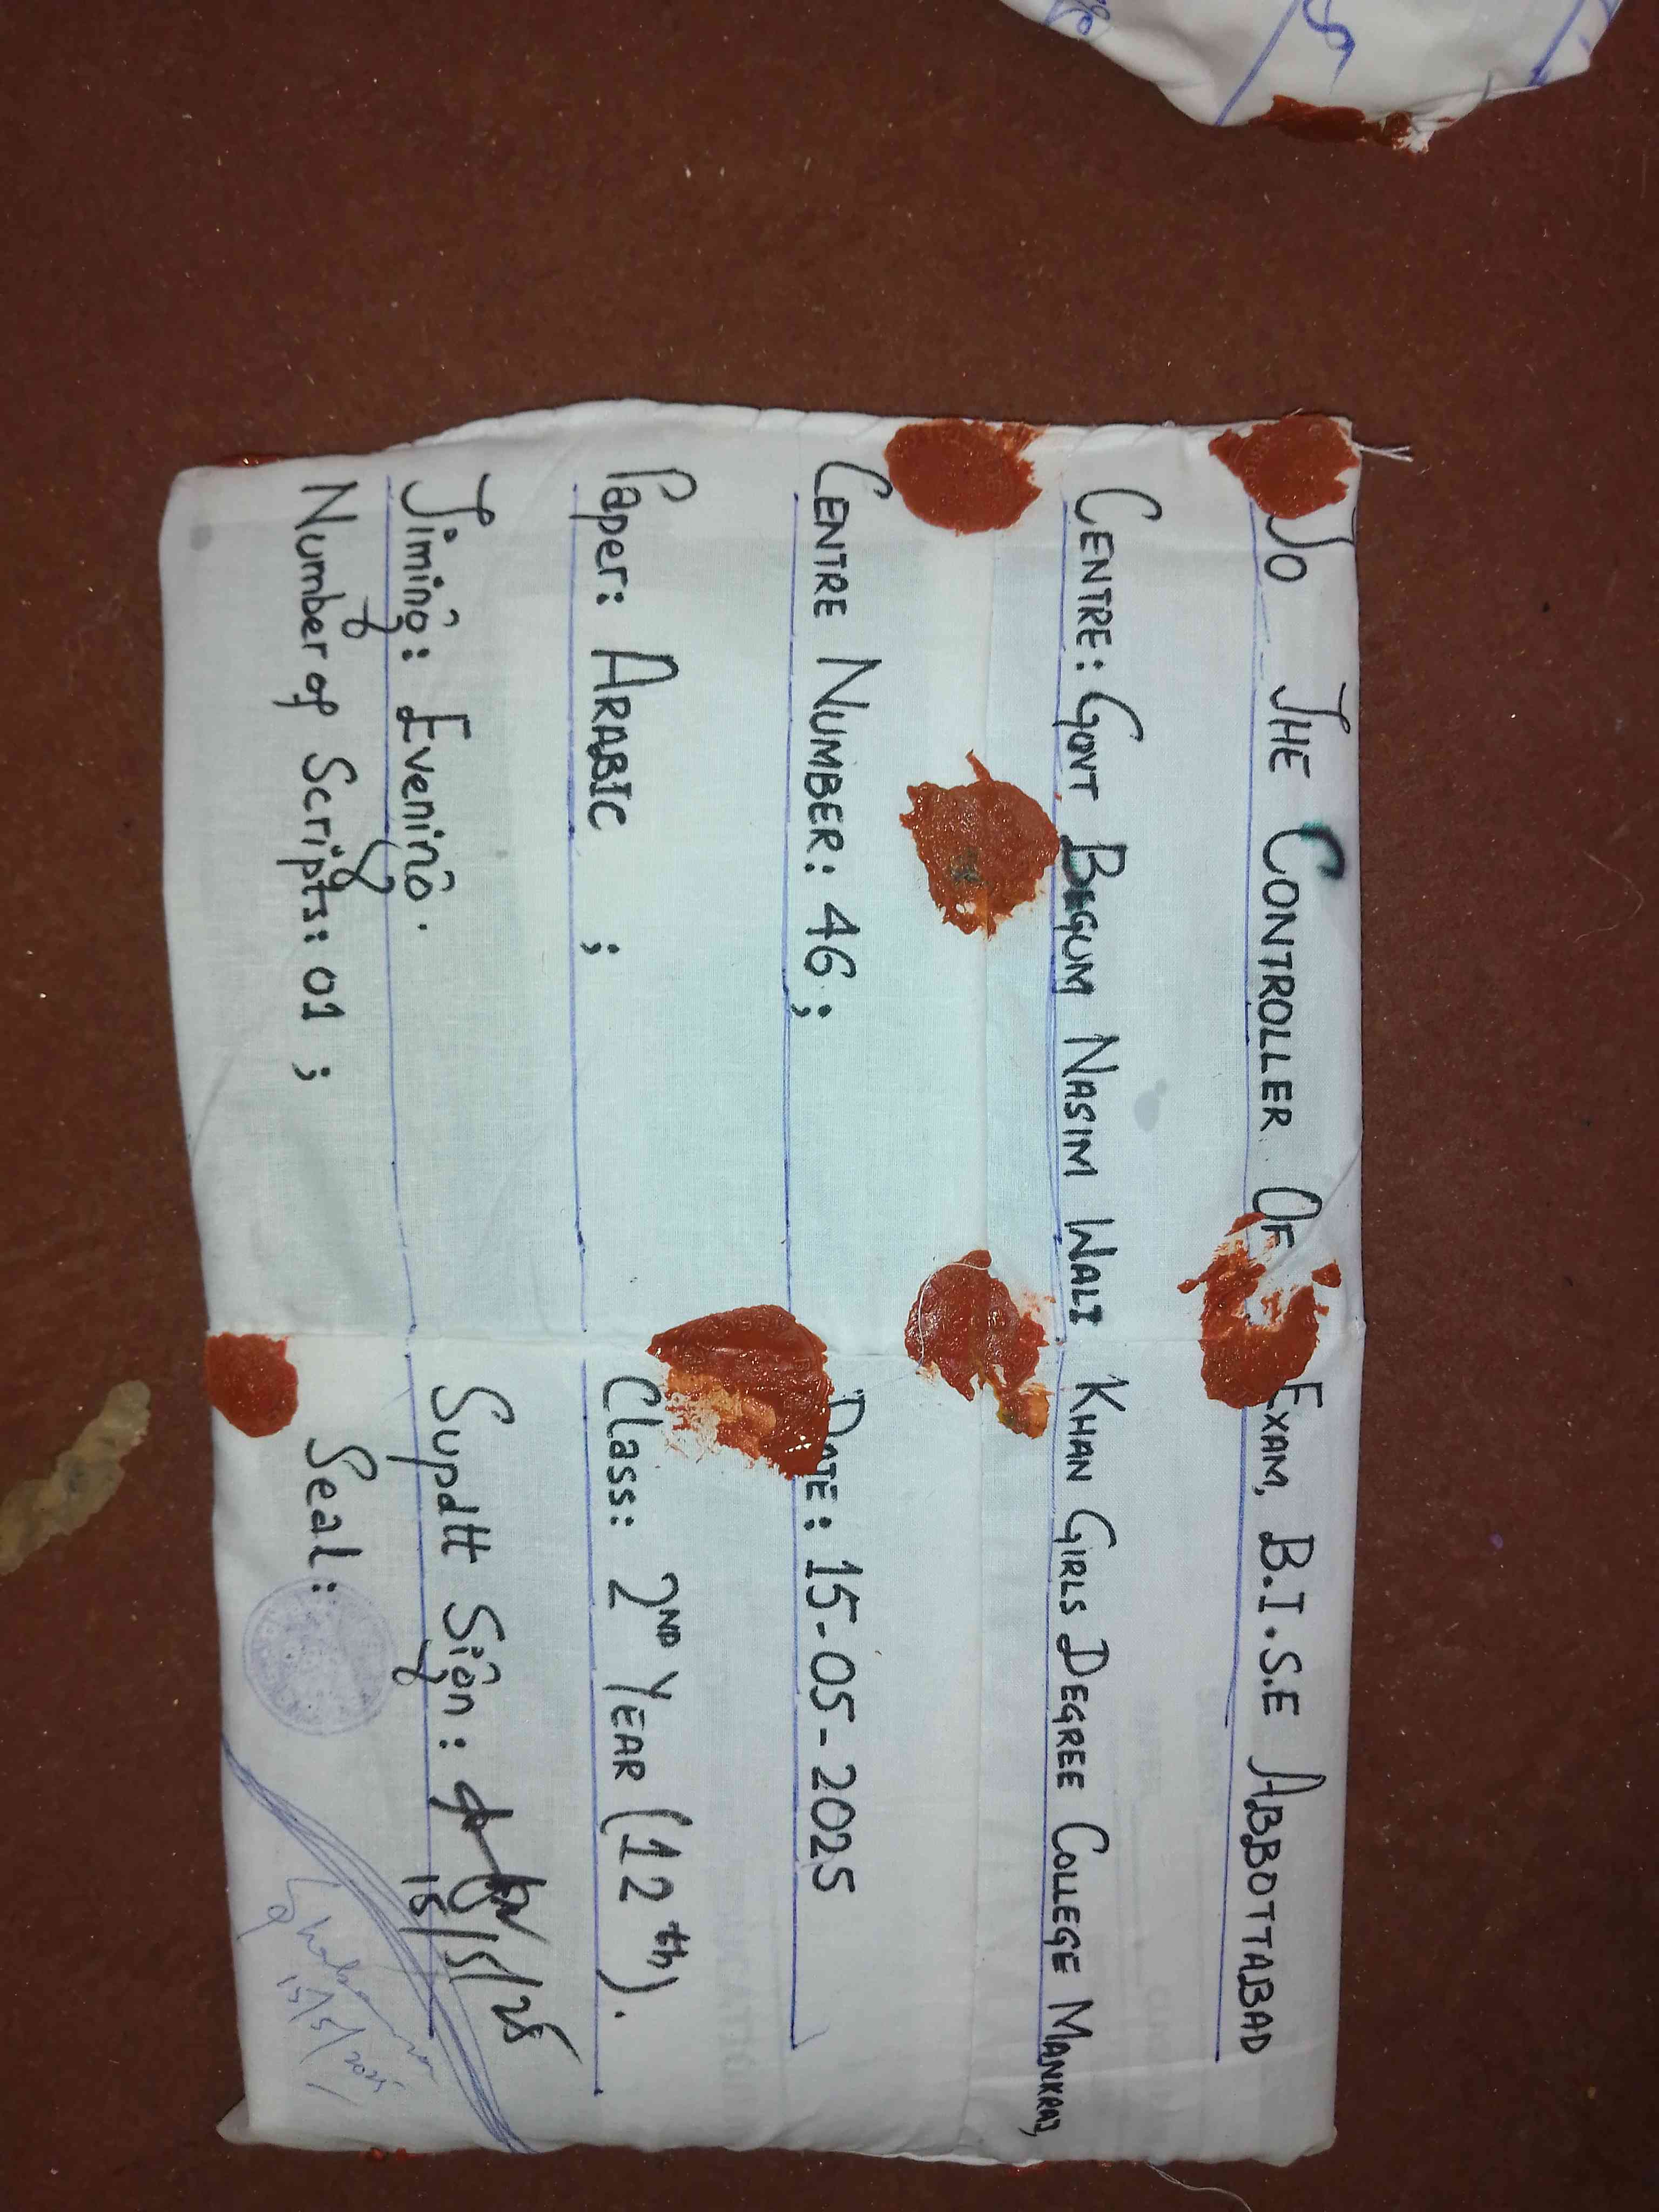 To The Controller Of Exam, B.I.S.E Abbottabad
Centre: Govt Begum Nasim Wali Khan Girls Degree College Mankrai,
Centre Number: 46; Date: 15-05-2025
Paper: Arabic ; Class: 2nd Year (12th).
Timing: Evening. Supdtt Sign: 15/5/25
Number of Scripts: 01 ; Seal:
15/5/2025